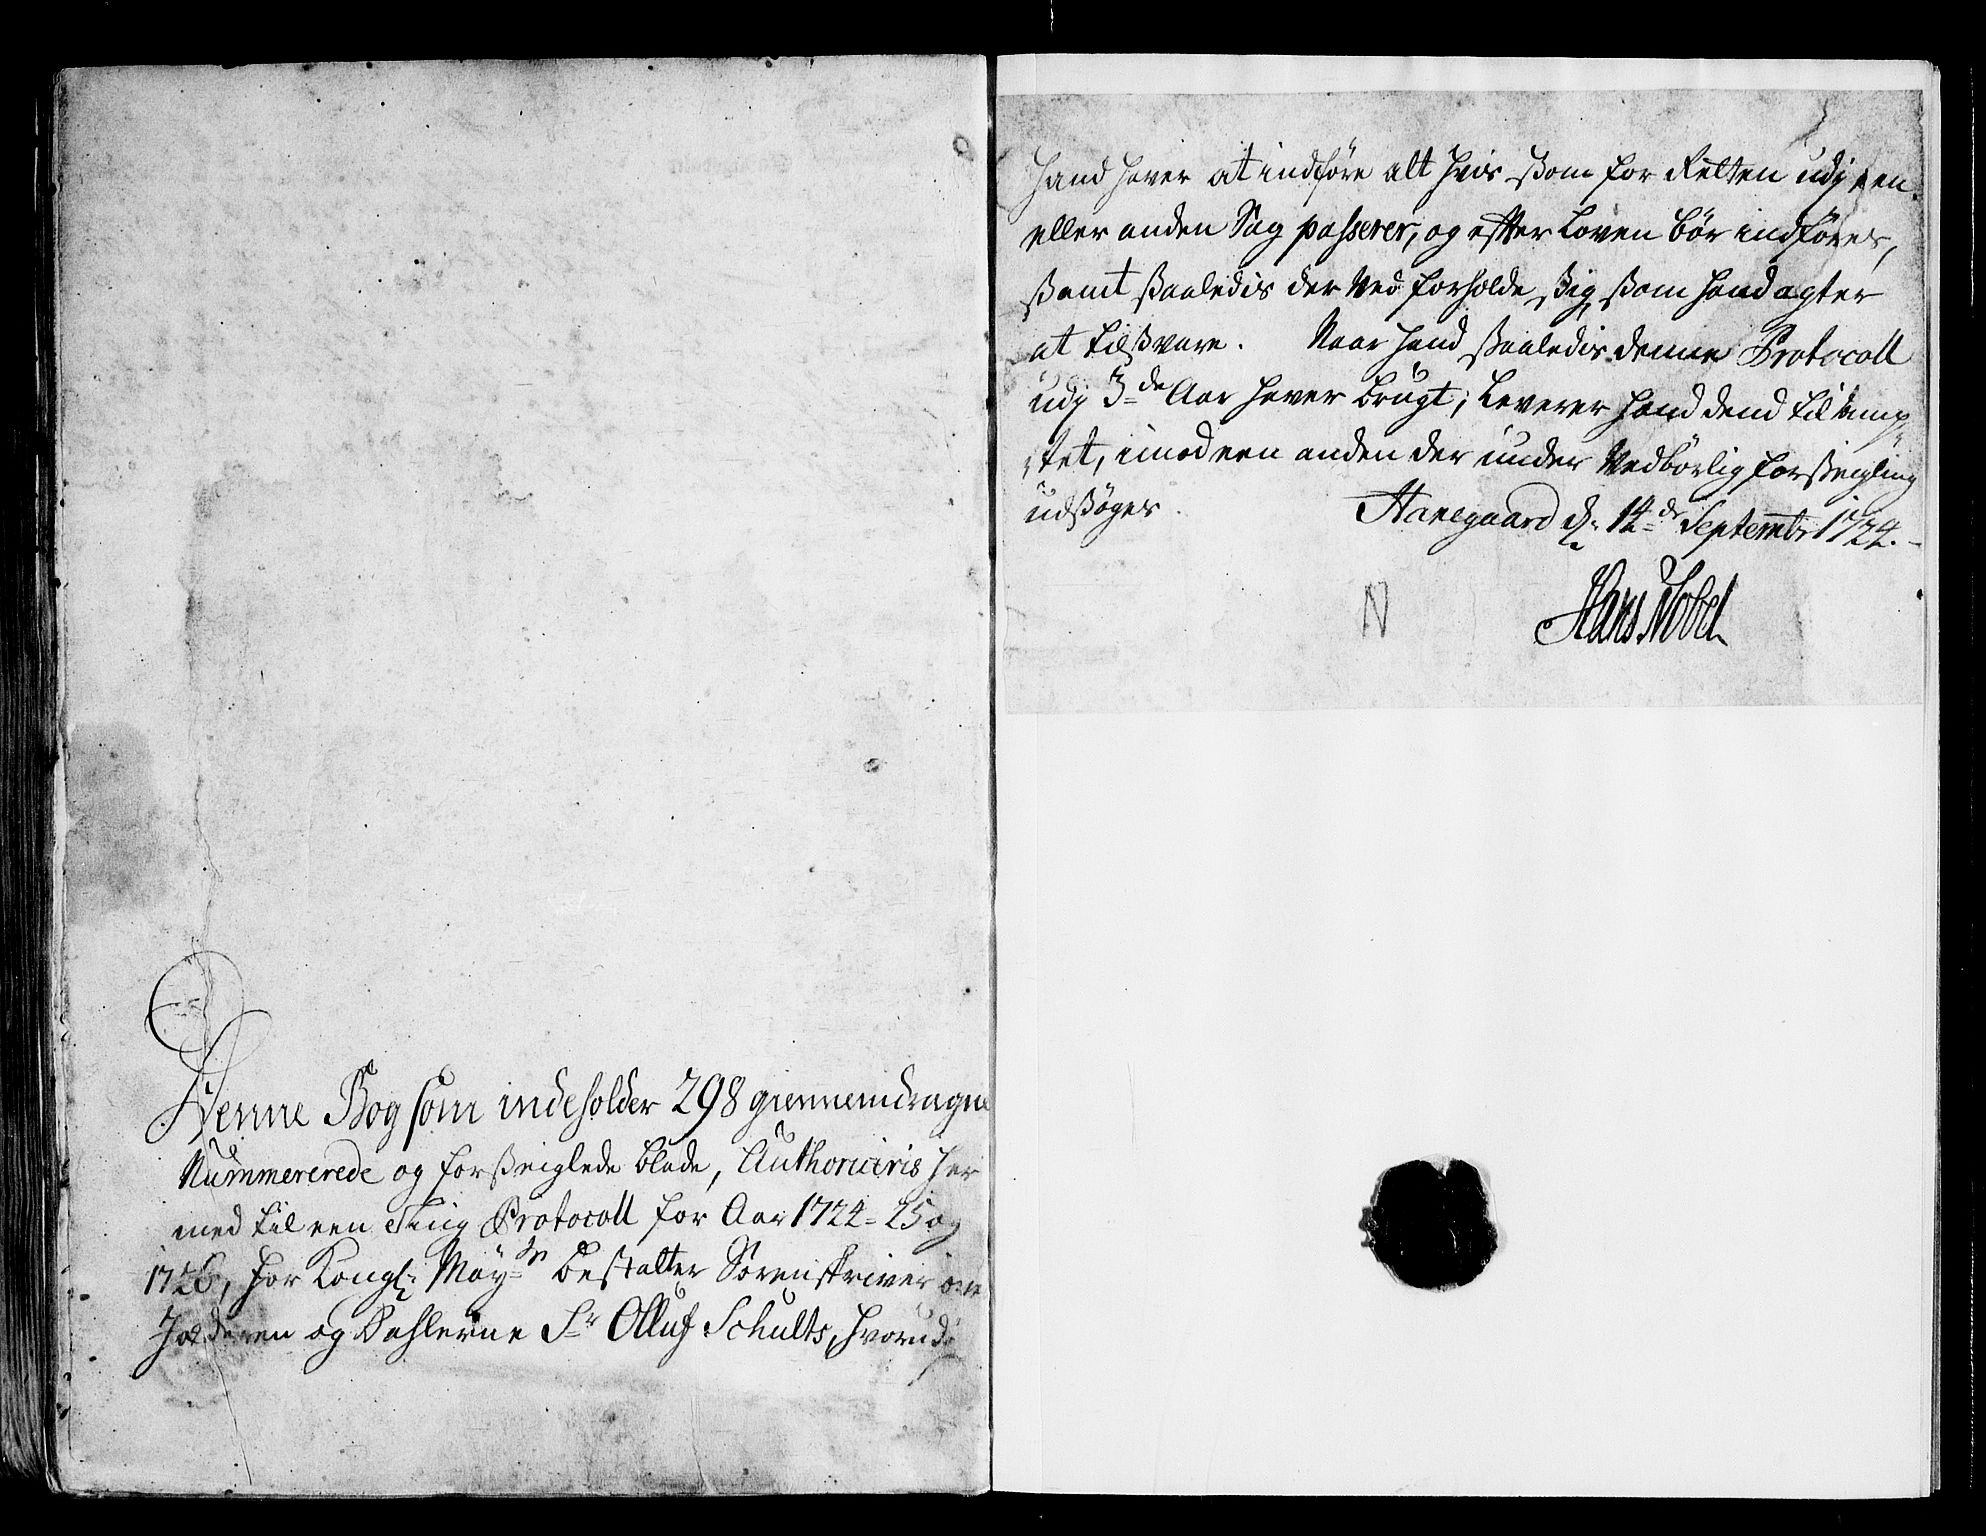 Denne Bog som indeholder 298 giennemdragne
Nummererede og forßeiglede blade, Authoriseris her
med til een Ting Protocoll for Aar 1724 = 25 og
1726, for Kongl: May=ts bestalter Sorenskriver over
Jædderen og Dahlerne Sr Olluf Schults, hvorudj
hand haver at indføre alt hvis ßom for Retten udj een
eller anden Sag passerer, og efter Loven bør indføres,
ßamt ßaaledis der ved forholde ßig ßom hand agter
at tilßvare. Naar hand ßaaledis denne Protocoll
udj 3=de Aar haver brugt, Leverer hand dend til Amp
tet, imod een anden der under Vedbørlig forßeigling
udßøges. Hanegaard d: 14=de Septembr 1724.
N Hans Nobel